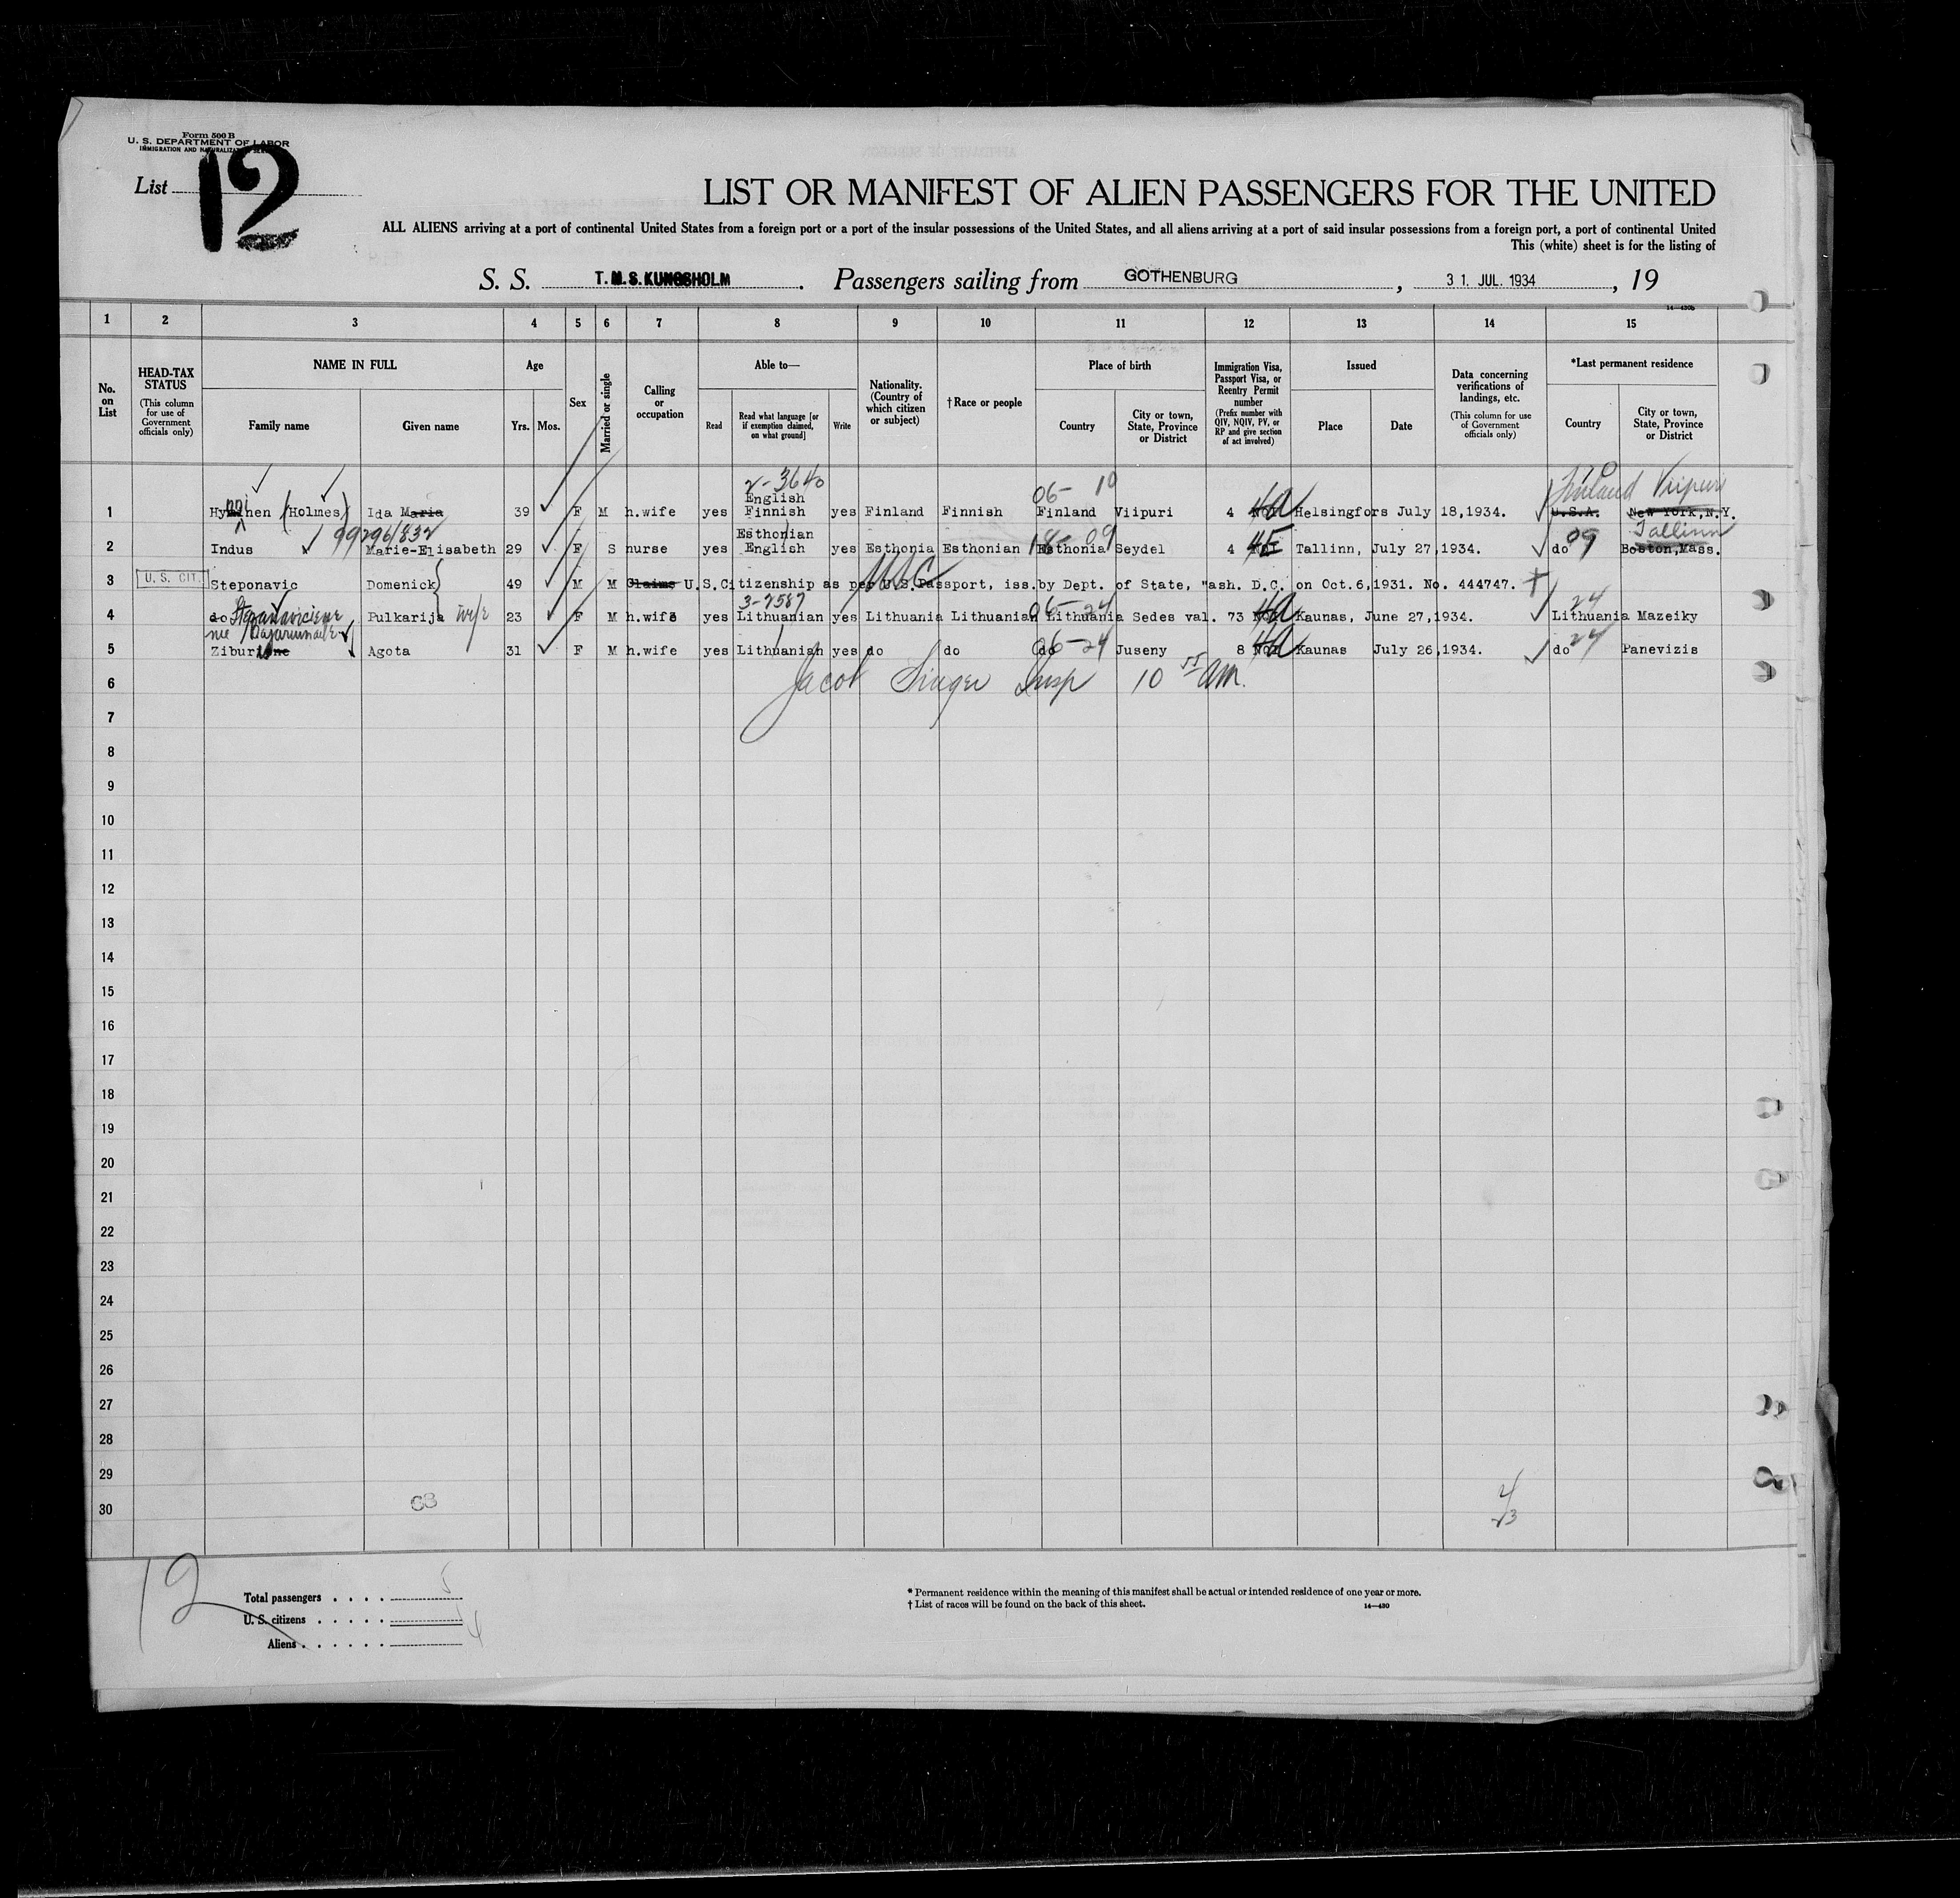 Form 500 B
U. S. DEPARTMENT OF LABOR
IMMIGRATION AND NATURALIZATION SERVICE
List 12
LIST OR MANIFEST OF ALIEN PASSENGERS FOR THE UNITED
ALL ALIENS arriving at a port of continental United States from a foreign port or a port of the insular possessions of the United States, and all aliens arriving at a port of said insular possessions from a foreign port, a port of continental United
This (white) sheet is for the listing of
S. S. T. M. S. KUNGSHOLM. Passengers sailing from GOTHENBURG, 31. JUL. 1934, 19
14—430b
1 2 3 4 5 6 7 8 9 10 11 12 13 14 15
No. on List
HEAD-TAX STATUS (This column for use of Government officials only)
NAME IN FULL
Family name
Given name
Age
Yrs.
Mos.
Sex
Married or single
Calling or occupation
Able to—
Read
Read what language [or if exemption claimed, on what ground]
Write
Nationality. (Country of which citizen or subject)
†Race or people
Place of birth
Country
City or town, State, Province or District
Immigration Visa, Passport Visa, or Reentry Permit number (Prefix number with QIV, NQIV, PV, or RP and give section of act involved)
Issued
Place
Date
Data concerning verifications of landings, etc. (This column for use of Government officials only)
*Last permanent residence
Country
City or town, State, Province or District
2-3640 06- 10 10 Finland Viipuri
English
1 (Holmes) Ida Maria 39 F M h.wife yes Finnish yes Finland Finnish Finland Viipuri 4 4a Helsingfors July 18,1934. U.S.A. New York,N.Y.
99296/832 Esthonian 18- 09 Tallinn
2 Indus Marie-Elisabeth 29 F S nurse yes English yes Esthonia Esthonian Esthonia Seydel 4 4E Tallinn, July 27,1934. do 09 Boston,Mass.
3 U. S. CIT. Steponavic Domenick 49 M M Claims U.S.Citizenship as per U.S.Passport, iss.by Dept. of State, "ash. D.C. on Oct.6,1931. No. 444747.
USC
3-2587 06-24 24
4 do Stepanaviciene Pulkarija wife 23 F M h.wife yes Lithuanian yes Lithuania Lithuanian Lithuania Sedes val. 73 4a Kaunas, June 27,1934. Lithuania Mazeiky
06-24 24
5 Agota 31 F M h.wife yes Lithuanian yes do do do Juseny 8 4a Kaunas July 26,1934. do Panevizis
6 Jacob Singer Insp 10 55 AM.
7
8
9
10
11
12
13
14
15
16
17
18
19
20
21
22
23
24
25
26
27
28
29
30
CB
12
Total passengers . . . . 5
U. S. citizens . . . . . 1
Aliens . . . . . . 4
* Permanent residence within the meaning of this manifest shall be actual or intended residence of one year or more.
† List of races will be found on the back of this sheet.
14—430